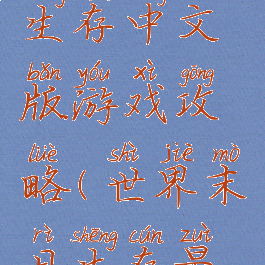 生存中文
bǎn yóu xì gōng
版游戏攻
lüè shì jiè mò
略(世界末
rì shēng cún zuì
日生存最